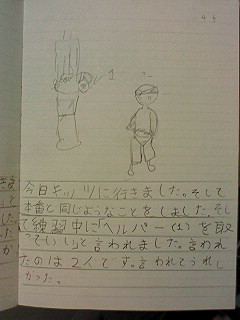 45
1
今日キッツに行きました。そして
本番と同じようなことをしました。そし
て練習中に「ヘルパー(1)を取
っていい」と言われました。言われ
たのは2人です。言われてうれし
かった。